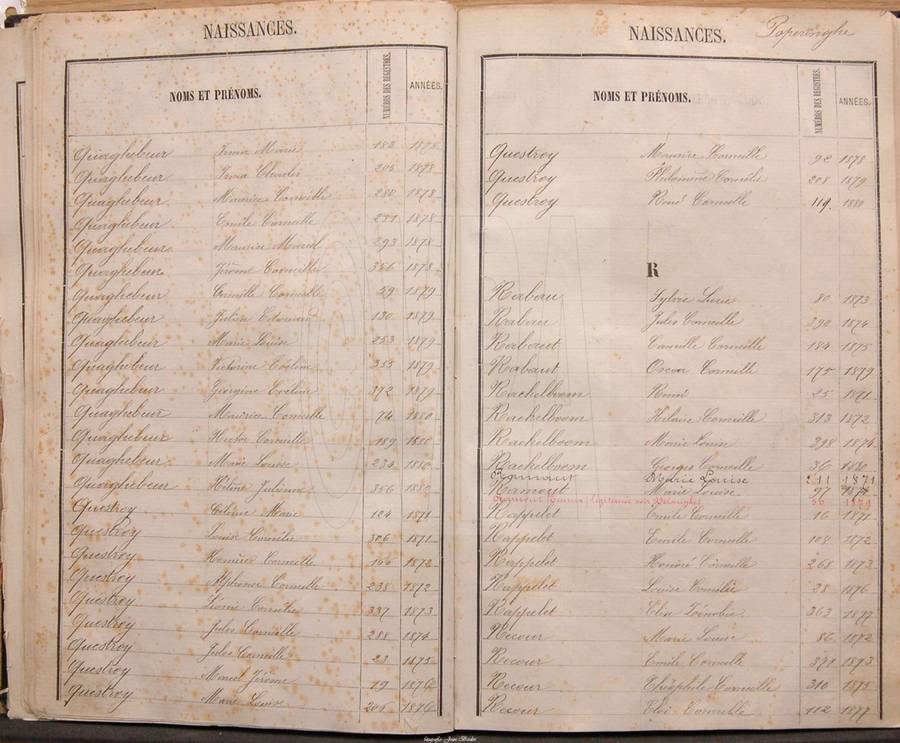 NAISSANCES.
NOMS ET PRÉNOMS. NUMÉROS DES REGISTRES. ANNÉES.
Quaghebeur Irma Marie 183 1878
Quaghebeur Irma 205 1878
Quaghebeur Maurice Corneille 1878
Quaghebeur Emile Corneille 1878
Quaghebeur Maurice Marcel 293 1878
Quaghebeur Jérôme Corneille 346 1878
Quaghebeur Camille Corneille 29 1879
Quaghebeur Julien Edouard 130 1879
Quaghebeur Marie Louise 253 1879
Quaghebeur 353 1879
Quaghebeur 372 1879
Quaghebeur Maurice Corneille 74 1880
Quaghebeur Hector Corneille 189 1880
Quaghebeur Marie Louise 234 1880
Quaghebeur Hélène Julienne 356 1880
Questroy Céline Marie 124 1871
Questroy Louise Cornélie 306 1871
Questroy Corneille 1872
Questroy Alphonse Corneille 238 1872
Questroy Léonie Cornélie 337 1873
Questroy Jules Corneille 288 1874
Questroy Jules Corneille 23 1875
Questroy Marcel Jérôme 19 1876
Questroy Marie Louise 205 1876
NAISSANCES. Poperinghe
NOMS ET PRÉNOMS. NUMÉROS DES REGISTRES. ANNÉES.
Questroy Maurice Corneille 92 1878
Questroy Philomène Cornélie 208 1879
Questroy René Corneille 119. 1880
R
Rabau Sylvie Lucie 80 1873
Rabau Jules Corneille 290 1874
Rabaut Camille Corneille 184 1875
Rabaut Oscar Corneille 175 1879
Rachelboom Rémi 25 1871
Rachelboom Hilaire Corneille 313 1872
Rachelboom Marie Louise 298 1874
Rachelboom Georges Corneille 36 1880
Ramout Marie Louise 211 1871
Ramout Marie Louise 97 1877
Ramout Emma 1879
Rappelet Emile Corneille 16 1871
Rappelet Emile Corneille 108 1872
Rappelet Honoré Corneille 268 1873
Rappelet Louise Cornélie 28 1876
Rappelet Elisa Zénobie 363 1877
Recour Marie Louise 86 1872
Recour Emile Corneille 371 1873
Recour Théophile Corneille 310 1875
Recour Corneille 112 1877